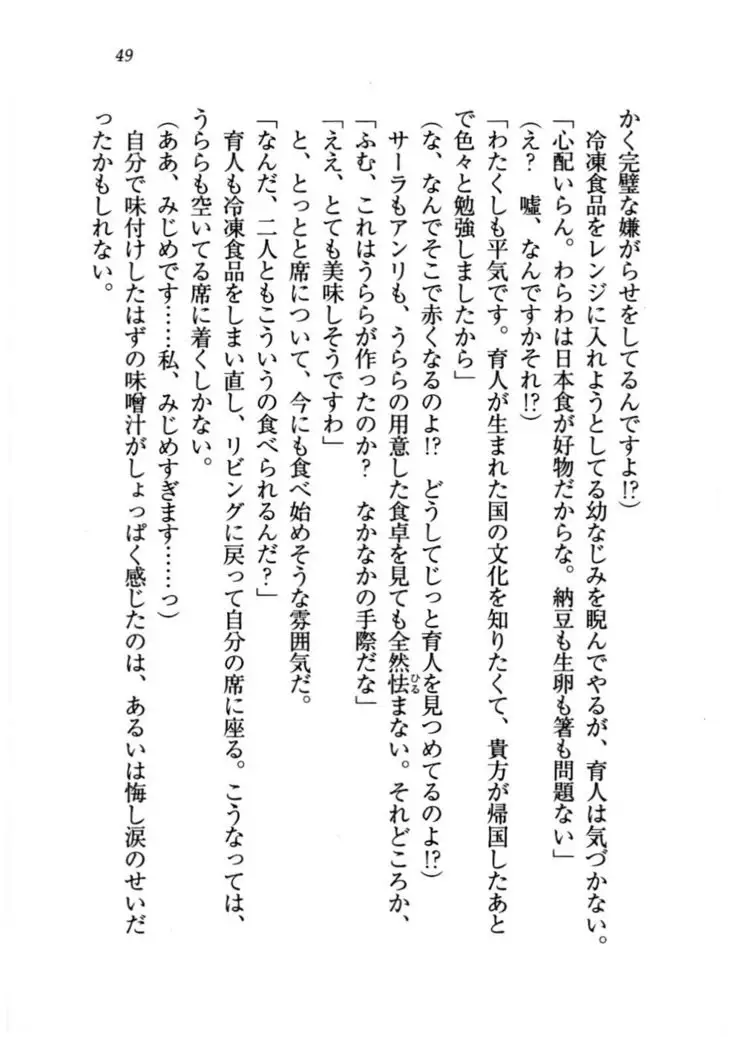 49
かく完璧な嫌がらせをしてるんですよ!?)
　冷凍食品をレンジに入れようとしてる幼なじみを睨んでやるが、育人は気づかない。
「心配いらん。わらわは日本食が好物だからな。納豆も生卵も箸も問題ない」
(え?　嘘、なんですかそれ!?)
「わたくしも平気です。育人が生まれた国の文化を知りたくて、貴方が帰国したあと
で色々と勉強しましたから」
(な、なんでそこで赤くなるのよ!?　どうしてじっと育人を見つめてるのよ!?)
　サーラもアンリも、うららの用意した食卓を見ても全然怯まない。それどころか、
ひる
「ふむ、これはうららが作ったのか?　なかなかの手際だな」
「ええ、とても美味しそうですわ」
　と、とっとと席について、今にも食べ始めそうな雰囲気だ。
「なんだ、二人ともこういうの食べられるんだ?」
　育人も冷凍食品をしまい直し、リビングに戻って自分の席に座る。こうなっては、
うららも空いてる席に着くしかない。
(ああ、みじめです……私、みじめすぎます……っ)
　自分で味付けしたはずの味噌汁がしょっぱく感じたのは、あるいは悔し涙のせいだ
ったかもしれない。